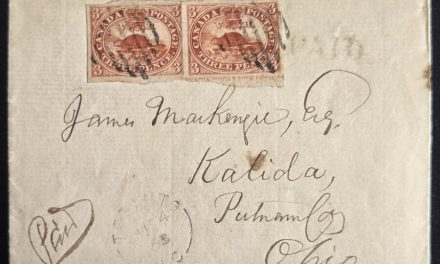 CANADA POSTAGE CANADA POSTAGE
3 3 3 3
THREE PENCE
PAID
James Mackenzie, Esq.
Kalida,
Putnam Co
Ohio
Paid